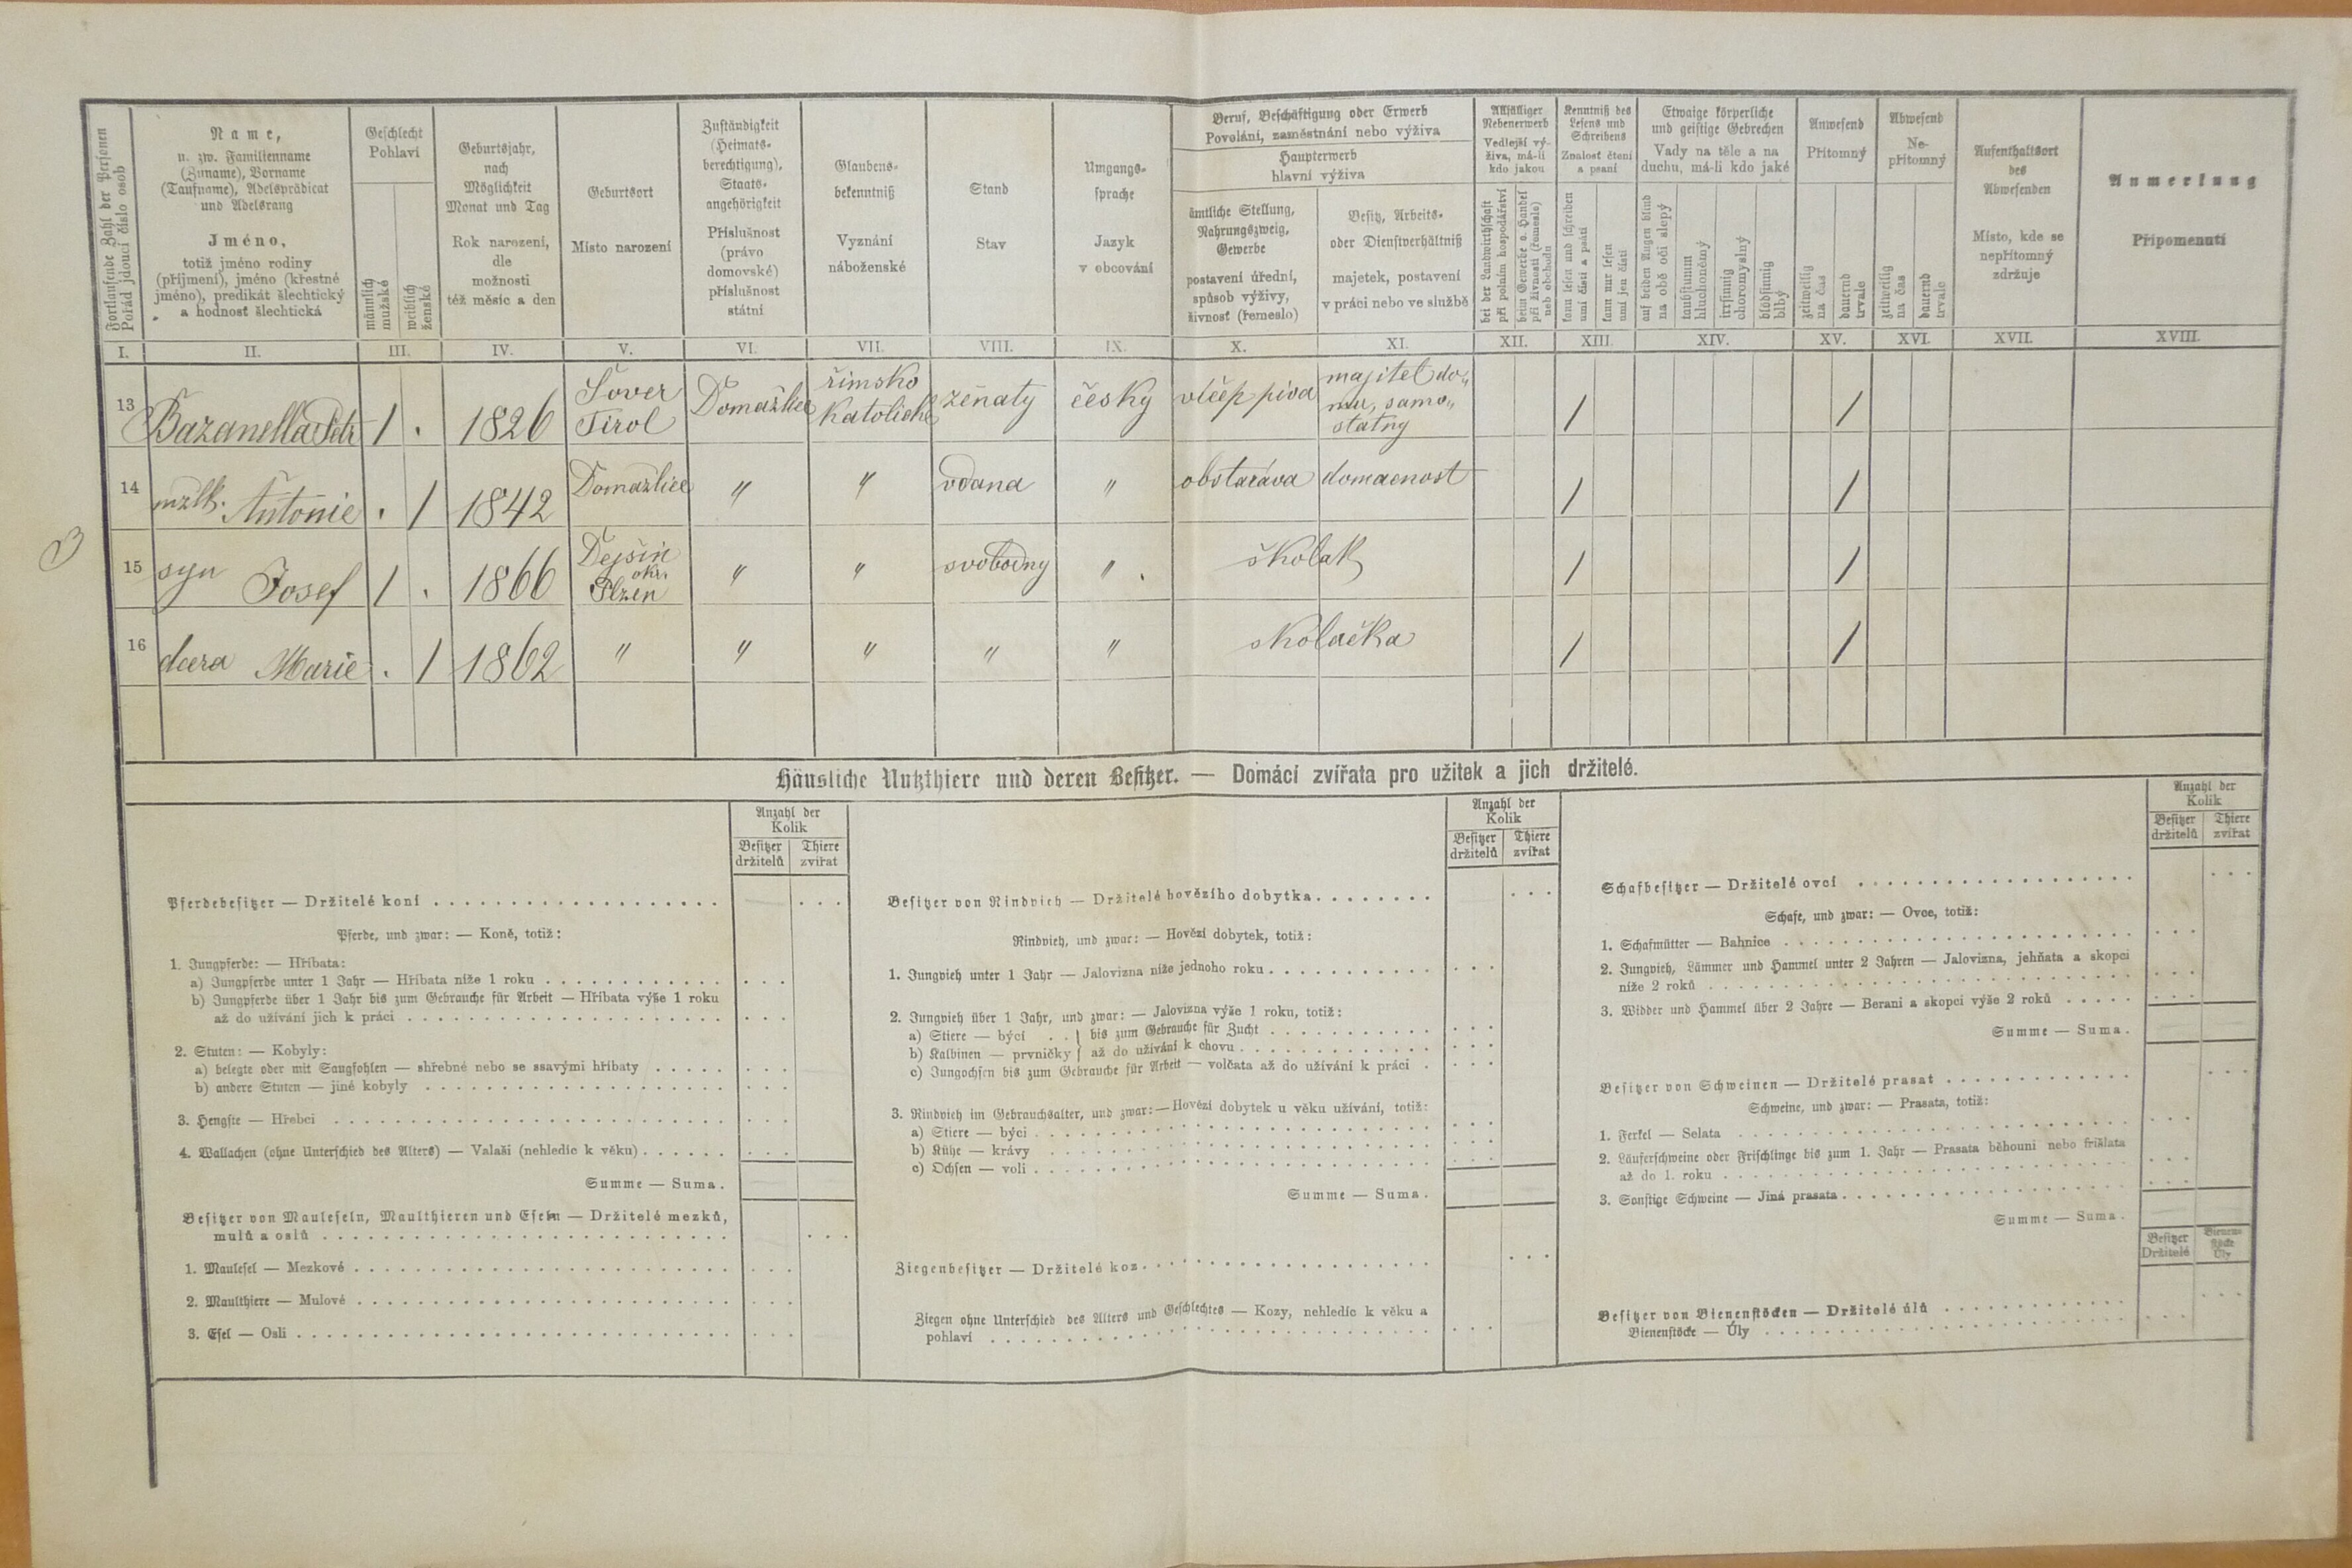 Fortlaufende Zahl der Personen
Pořád jdoucí číslo osob
Name,
u. zw. Familienname
(Zuname), Vorname
(Taufname), Adelsprädicat
und Adelsrang
Jméno,
totiž jméno rodiny
(příjmení), jméno (křestné
jméno), predikát šlechtický
a hodnost šlechtická
Geschlecht
Pohlaví
männlich
mužské
weiblich
ženské
Geburtsjahr,
nach
Möglichkeit
Monat und Tag
Rok narození,
dle
možnosti
též měsíc a den
Geburtsort
Místo narození
Zuständigkeit
(Heimats-
berechtigung),
Staats-
angehörigkeit
Příslušnost
(právo
domovské)
příslušnost
státní
Glaubens-
bekenntniß
Vyznání
náboženské
Stand
Stav
Umgangs-
sprache
Jazyk
v obcování
Beruf, Beschäftigung oder Erwerb
Povolání, zaměstnání nebo výživa
Haupterwerb
hlavní výživa
ämtliche Stellung,
Nahrungszweig,
Gewerbe
postavení úřední,
spůsob výživy,
živnosť (řemeslo)
Besitz, Arbeits-
oder Dienstverhältniß
majetek, postavení
v práci nebo ve službě
Allfälliger
Nebenerwerb
Vedlejší vý-
živa, má-li
kdo jakou
bei der Landwirthschaft
při polním hospodářství
beim Gewerbe o. Handel
při živnosti (řemesle)
neb obchodu
Kenntniß des
Lesens und
Schreibens
Znalosť čtení
a psaní
kann lesen und schreiben
umí čísti a psáti
kann nur lesen
umí jen čísti
Etwaige körperliche
und geistige Gebrechen
Vady na těle a na
duchu, má-li kdo jaké
auf beiden Augen blind
na obě oči slepý
taubstumm
hluchoněmý
irrsinnig
choromyslný
blödsinnig
blbý
Anwesend
Přítomný
zeitweilig
na čas
dauernd
trvale
Abwesend
Ne-
přítomný
zeitweilig
na čas
dauernd
trvale
Aufenthaltsort
des
Abwesenden
Místo, kde se
nepřítomný
zdržuje
Anmerkung
Připomenutí
I. II. III. IV. V. VI. VII. VIII. IX. X. XI. XII. XIII. XIV. XV. XVI. XVII. XVIII.
13 Bazanella Petr 1 . 1826 Šover Tirol Domažlice římsko katolické ženatý český včep piva majitel do„ mu, samo„ statný / /
14 mžlk. Antonie . 1 1842 Domažlice " " vdana " obstarává domacnost / /
15 syn Josef 1 . 1866 Dejšin okr. Plzen " " svobodny " . školak / /
16 dcera Marie . 1 1862 " " " " " školačka / /
Häusliche Nutzthiere und deren Besitzer. — Domácí zvířata pro užitek a jich držitelé.
Anzahl der
Kolik
Besitzer
držitelů
Thiere
zvířat
Pferdebesitzer — Držitelé koní
Pferde, und zwar: — Koně, totiž:
1. Jungpferde: — Hříbata:
a) Jungpferde unter 1 Jahr — Hříbata níže 1 roku
b) Jungpferde über 1 Jahr bis zum Gebrauche für Arbeit — Hříbata výše 1 roku
až do užívání jich k práci
2. Stuten: — Kobyly:
a) belegte oder mit Saugfohlen — shřebné nebo se ssavými hříbaty
b) andere Stuten — jiné kobyly
3. Hengste — Hřebci
4. Wallachen (ohne Unterschied des Alters) — Valaši (nehledíc k věku)
Summe — Suma.
Besitzer von Mauleseln, Maulthieren und Eseln — Držitelé mezků,
mulů a oslů
1. Maulesel — Mezkové
2. Maulthiere — Mulové
3. Esel — Osli
Anzahl der
Kolik
Besitzer
držitelů
Thiere
zvířat
Besitzer von Rindvieh — Držitelé hovězího dobytka
Rindvieh, und zwar: — Hovězí dobytek, totiž:
1. Jungvieh unter 1 Jahr — Jalovizna níže jednoho roku
2. Jungvieh über 1 Jahr, und zwar: — Jalovizna výše 1 roku, totiž:
a) Stiere — býci . . } bis zum Gebrauche für Zucht
b) Kalbinen — prvničky } až do užívání k chovu
c) Jungochsen bis zum Gebrauche für Arbeit — volčata až do užívání k práci
3. Rindvieh im Gebrauchsalter, und zwar: — Hovězí dobytek u věku užívání, totiž:
a) Stiere — býci
b) Kühe — krávy
c) Ochsen — voli
Summe — Suma.
Ziegenbesitzer — Držitelé koz
Ziegen ohne Unterschied des Alters und Geschlechtes — Kozy, nehledíc k věku a
pohlaví
Anzahl der
Kolik
Besitzer
držitelů
Thiere
zvířat
Schafbesitzer — Držitelé ovcí
Schafe, und zwar: — Ovce, totiž:
1. Schafmütter — Bahnice
2. Jungvieh, Lämmer und Hammel unter 2 Jahren — Jalovizna, jehňata a skopci
níže 2 roků
3. Widder und Hammel über 2 Jahre — Berani a skopci výše 2 roků
Summe — Suma.
Besitzer von Schweinen — Držitelé prasat
Schweine, und zwar: — Prasata, totiž:
1. Ferkel — Selata
2. Läuferschweine oder Frischlinge bis zum 1. Jahr — Prasata běhouni nebo frišlata
až do 1. roku
3. Sonstige Schweine — Jiná prasata
Summe — Suma.
Besitzer
Držitelé
Bienen-
stöcke
Úly
Besitzer von Bienenstöcken — Držitelé úlů
Bienenstöcke — Úly